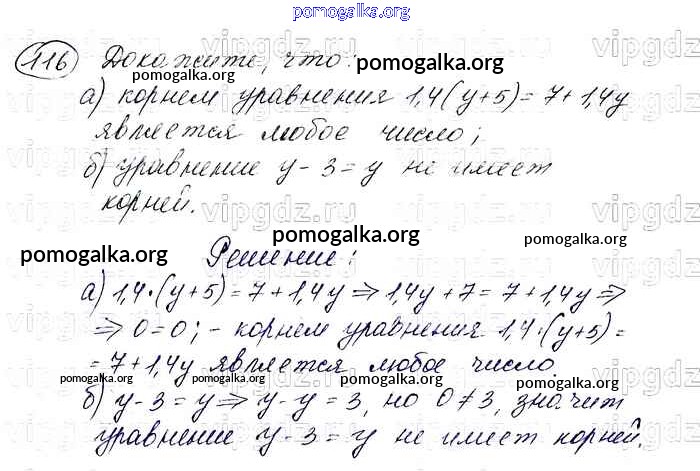 pomogalka.org
116 Докажите, что:
pomogalka.org pomogalka.org
а) корнем уравнения 1,4(y+5)=7+1,4y
является любое число;
б) уравнение y-3=y не имеет
корней.
vipgdz.ru
pomogalka.org pomogalka.org pomogalka.org
Решение:
а) 1,4·(y+5)=7+1,4y ⇒ 1,4y+7=7+1,4y ⇒
⇒ 0=0; - корнем уравнения 1,4·(y+5)=
=7+1,4y является любое число.
pomogalka.org pomogalka.org pomogalka.org
б) y-3=y ⇒ y-y=3, но 0≠3, значит
уравнение y-3=y не имеет корней.